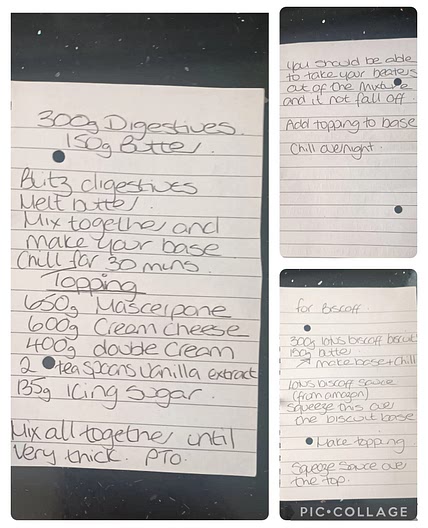 300g Digestives.
150g Butter.
Blitz digestives
Melt butter.
Mix together and
make your base
Chill for 30 mins.
Topping
650g Mascerpone
600g Cream Cheese
400g double Cream
2 teaspoons vanilla extract
135g Icing Sugar.
Mix all together until
very thick. PTO.
you should be able
to take your beaters
out of the mixture
and it not fall off.
Add topping to base
Chill overnight.
for Biscoff.
300g lotus biscoff biscuit
150g butter
↗ make base + Chill
Lotus biscoff sauce
(from amazon)
Squeeze this over
the biscuit base
Make topping
Squeeze sauce over
the top.
PIC•COLLAGE